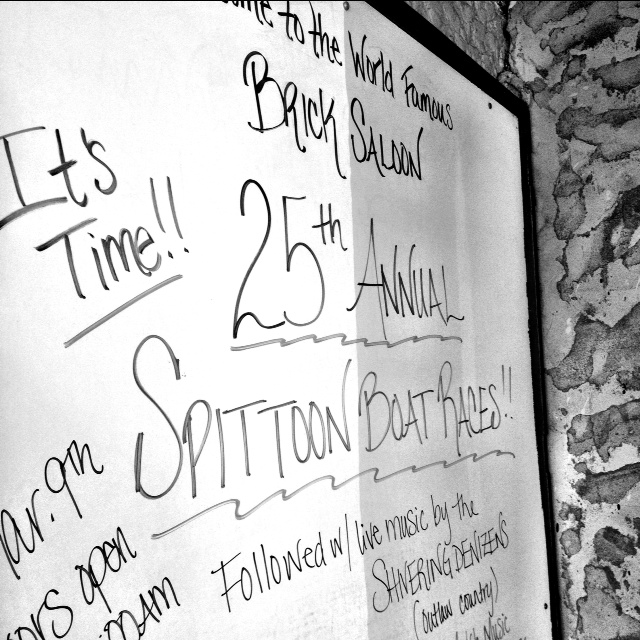 to the World Famous
BRICK SALOON
It's
Time!!
25th ANNUAL
SPITTOON BOAT RACES!!
9th
open
Followed w/ live music by the
SHIVERING DENIZENS
(outlaw country)
Music